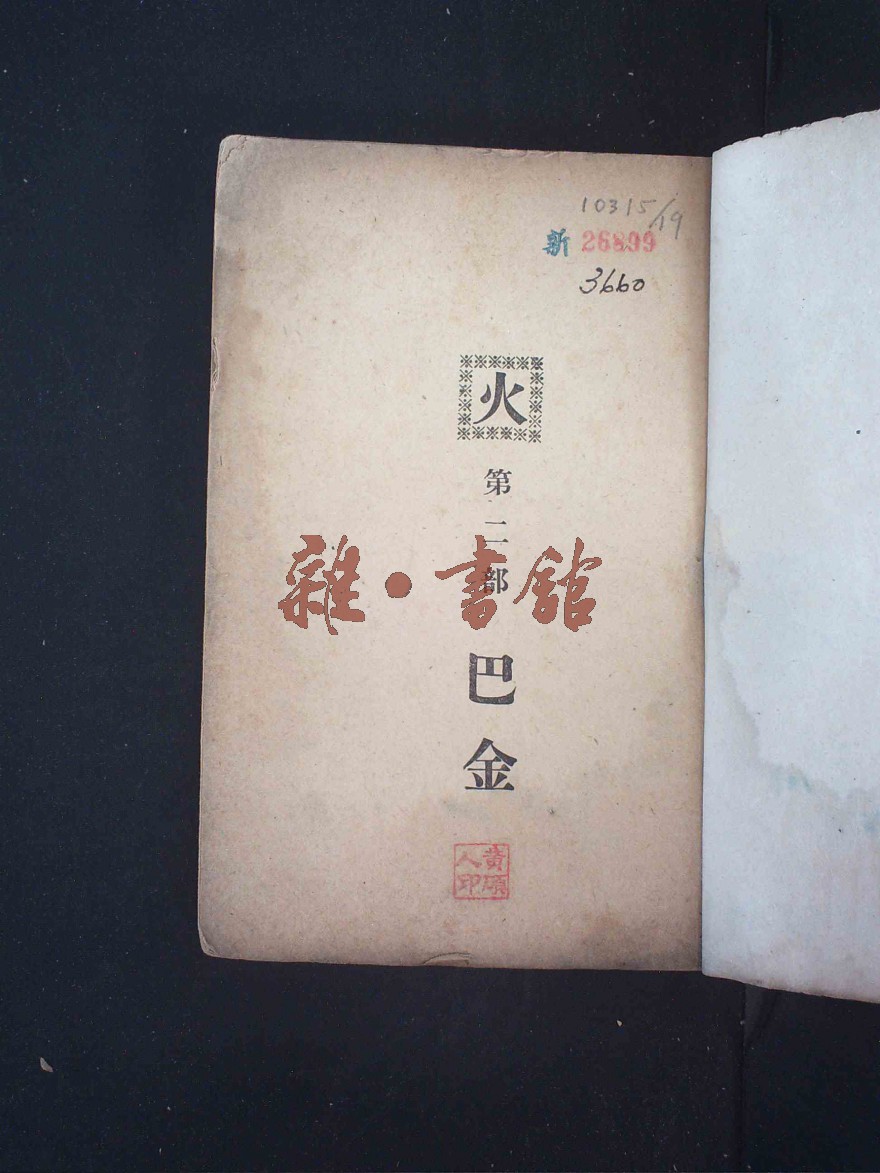 10315/19
新 26899
3660
火
第二部
雜·書舘
巴金
黃碩人印